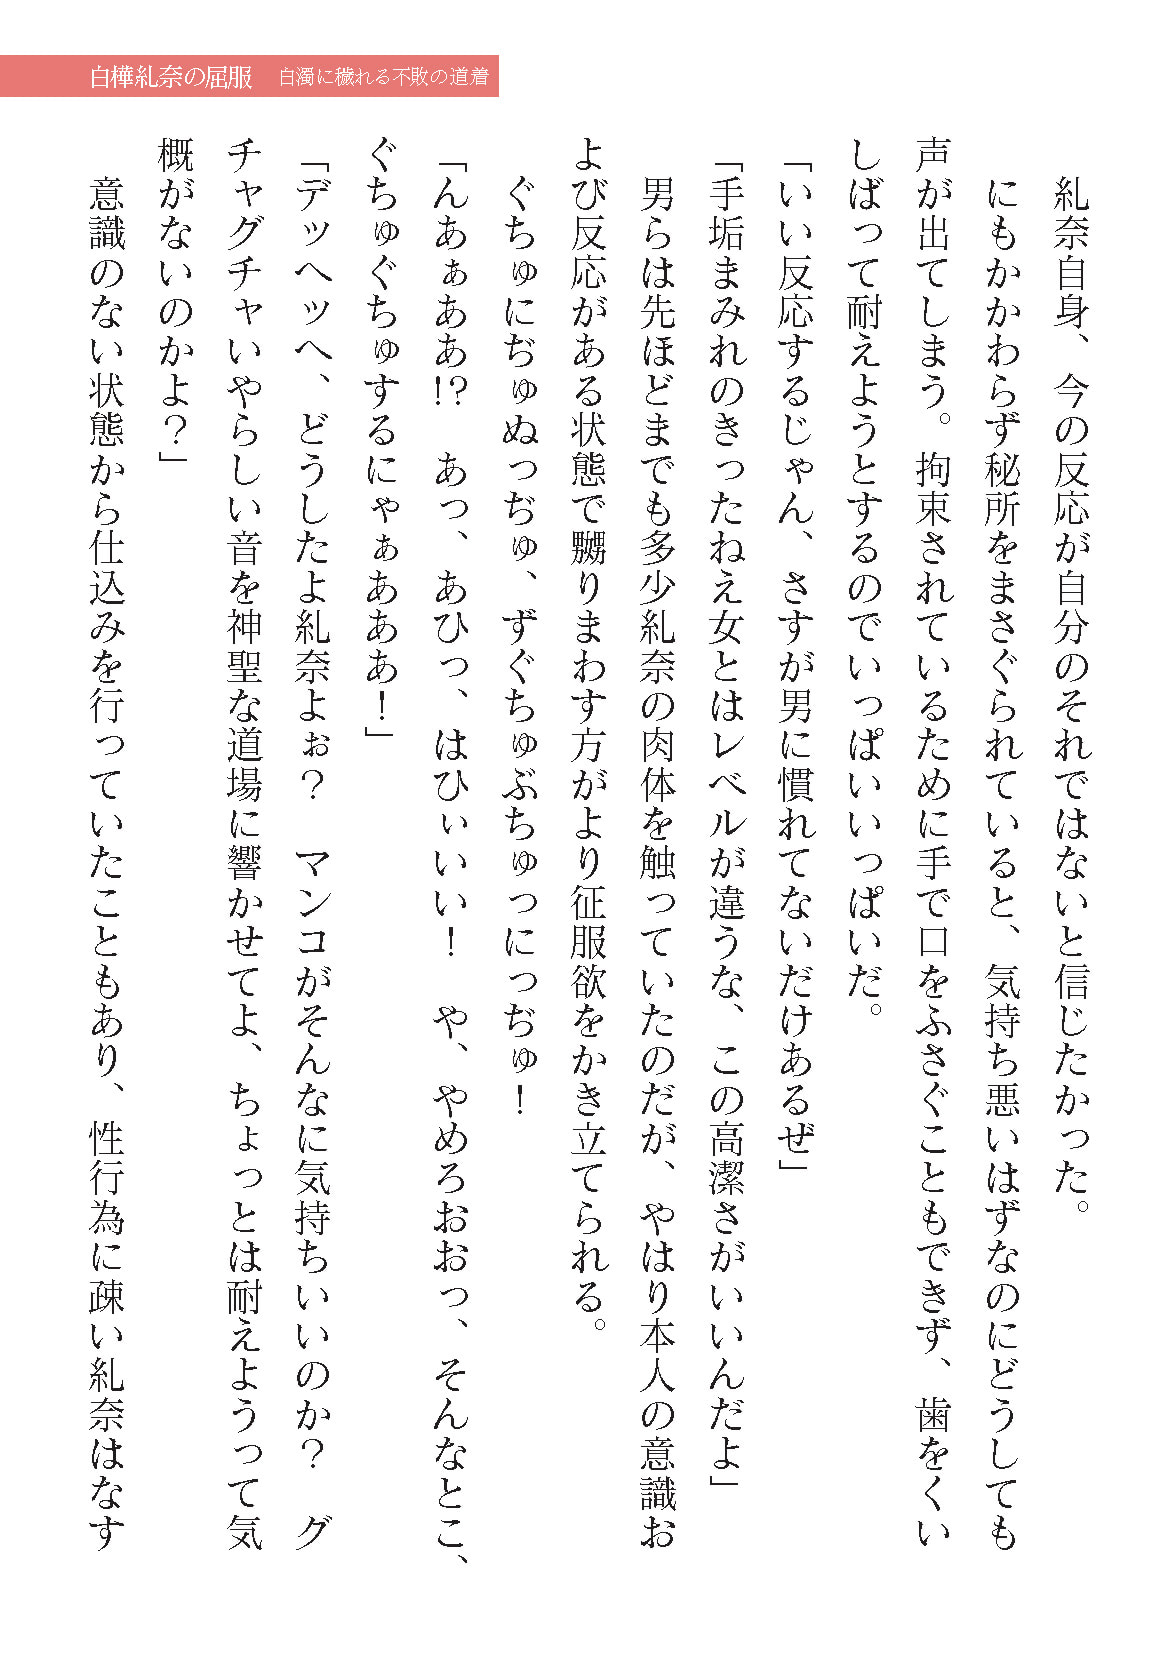 白樺糺奈の屈服　白濁に穢れる不敗の道着
　糺奈自身、今の反応が自分のそれではないと信じたかった。
　にもかかわらず秘所をまさぐられていると、気持ち悪いはずなのにどうしても
声が出てしまう。拘束されているために手で口をふさぐこともできず、歯をくい
しばって耐えようとするのでいっぱいいっぱいだ。
「いい反応するじゃん、さすが男に慣れてないだけあるぜ」
「手垢まみれのきったねえ女とはレベルが違うな、この高潔さがいいんだよ」
　男らは先ほどまでも多少糺奈の肉体を触っていたのだが、やはり本人の意識お
よび反応がある状態で嬲りまわす方がより征服欲をかき立てられる。
　ぐちゅにぢゅぬっぢゅ、ずぐちゅぶちゅっにっぢゅ！
「んあぁああ!?　あっ、あひっ、はひぃいい！　や、やめろおおっ、そんなとこ、
ぐちゅぐちゅするにゃぁあああ！」
「デッヘッヘ、どうしたよ糺奈よぉ？　マンコがそんなに気持ちいいのか？　グ
チャグチャいやらしい音を神聖な道場に響かせてよ、ちょっとは耐えようって気
概がないのかよ？」
　意識のない状態から仕込みを行っていたこともあり、性行為に疎い糺奈はなす